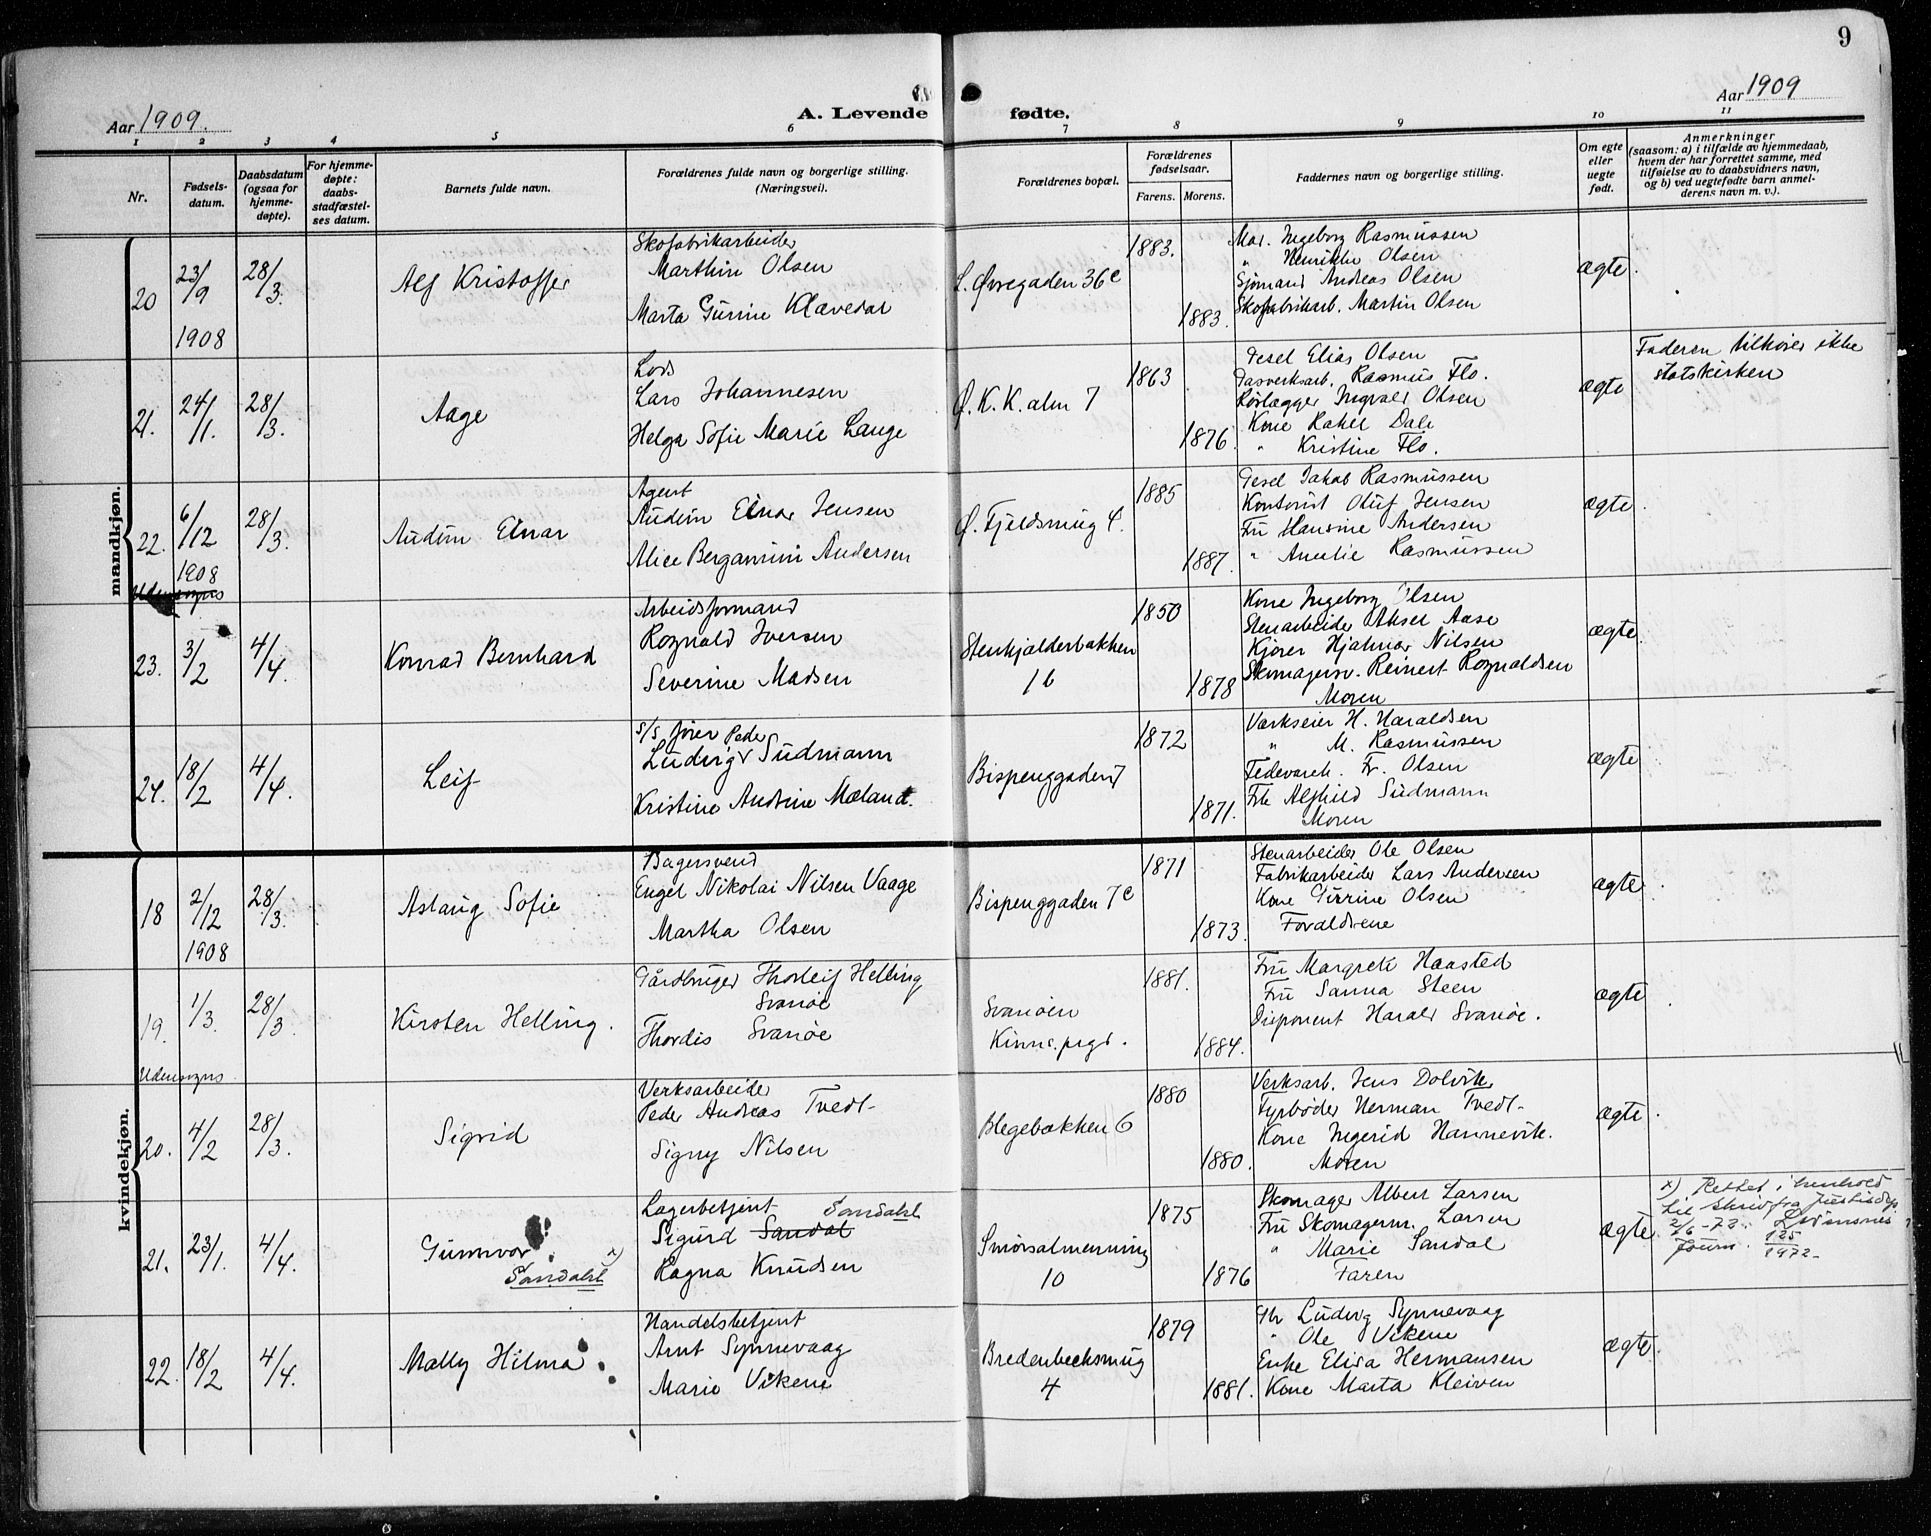 9
Aar 1909.
A. Levende fødte.
Aar 1909
1 2 3 4 5 6 7 8 9 10 11
Nr.
Fødsels-
datum.
Daabsdatum
(ogsaa for
hjemme-
døpte).
For hjemme-
døpte:
daabs-
stadfæstel-
ses datum.
Barnets fulde navn.
Forældrenes fulde navn og borgerlige stilling.
(Næringsvei).
Forældrenes bopæl.
Forældrenes
fødselsaar.
Farens. Morens.
Faddernes navn og borgerlige stilling.
Om egte
eller
uegte
født.
Anmerkninger
(saasom: a) i tilfælde av hjemmedaab,
hvem der har forrettet samme, med
tilføielse av to daabsvidners navn,
og b) ved uegtefødte barn anmel-
derens navn m. v.).
mandkjøn.
20
23/9
1908
28/3.
Alf Kristoffer
Skofabrikarbeider
Marthin Olsen
Marta Gurine Klavedal
L. Øvregaden 36c
1883.
1883.
Mar. Ingeborg Rasmussen
" Henrikke Olsen
Sjømand Andreas Olsen
Skofabrikarb. Martin Olsen
ægte.
21.
24/1.
28/3.
Aage
Lods
Lars Johannesen
Helga Sofie Marie Lange
Ø. K. K. alm 7
1863
1876.
Pesel Elias Olsen
Gasverksarb. Rasmus Flo.
Rørlægger Ingvald Olsen
Kone Rakel Dale
" Kristine Flo.
ægte
Faderen tilhører ikke
statskirken
22.
6/12
1908
28/3.
Audun Einar
Agent
Audun Einar Jensen
Alice Bergamine Andersen
Ø. Fjeldsmug 4.
1885
1887.
Pesel Jakob Rasmussen
Kontorist Oluf Jensen
Fru Hansine Andersen
" Amelie Rasmussen
ægte.
Udensogns
23.
3/2
4/4.
Konrad Bernhard
Arbeidsformand
Rognald Iversen
Severine Madsen
Stenkjælderbakken
16
1850
1878
Kone Ingeborg Olsen
Stenarbeider Aksel Aase
Kjører Hjalmar Nilsen
Skomagersv. Reinert Rognaldsen
Moren
ægte.
24.
18/2
4/4.
Leif
S/S fører Peder
Ludvig Sudmann
Kristine Andrine Mæland.
Bispenggaden 7
1872
1871.
Værkseier H. Haraldsen
" M. Rasmussen
Fedevareh. Fr. Olsen
Frk Alfhild Sudmann
Moren
ægte.
kvindekjøn.
18
2/12
1908
28/3.
Aslaug Sofie
Bagersvend
Engel Nikolai Nilsen Vaage
Martha Olsen
Bispenggaden 7c
1871
1873.
Stenarbeider Ole Olsen
Fabrikarbeider Lars Andersen
Kone Gurine Olsen
Forældrene
ægte.
19.
1/3.
28/3
Kirsten Helling.
Gårdbruger Thorleif Helling
Svanøe
Thordis Svanøe
Svanøen
Kinns prgd.
1881.
1884.
Fru Margrete Haasted
Fru Sanna Steen
Disponent Harald Svanøe.
ægte.
Udensogns
20.
4/2
28/3.
Sigrid
Verksarbeider
Peder Andreas Tvedt
Signy Nilsen
Blegebakken 6
1880
1880.
Verksarb. Jens Dolvik
Fyrbøder Herman Tvedt
Kone Ingerid Hannevik.
Moren
ægte.
21.
23/1.
4/4.
Gunnvor x)
Sandahl
Lagerbetjent Sandahl
Sigurd Sandal
Ragna Knudsen
Smørsalmenning
10
1875
1876
Skomager Albert Larsen
Fru Skomagerm. Larsen
" Marie Sandal
Faren
ægte
x) Rettet i henhold
til skriv fra Justisdep
2/6-72.
Journ. 125/1972
22.
18/2
4/4.
Mally Hilma
Handelsbetjent
Arnt Synnevaag
Marie Vikene
Bredenbecksmug
4
1879
1881.
Hr Ludvig Synnevaag
" Ole Vikene
Enke Elisa Hermansen
Kone Marta Kleiven
ægte.